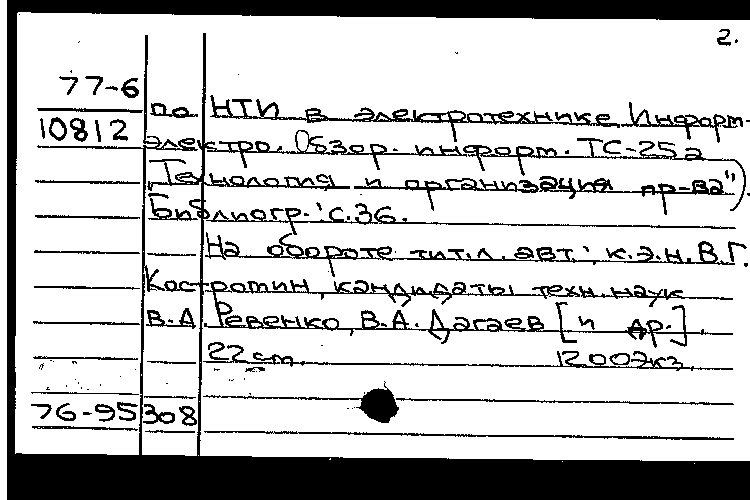 2.
77-6
10812
по НТИ в электротехнике. Информ-
электро. Обзор. информ. ТС-25а
„Технология и организация пр-ва").
Библиогр.: с.36.
На обороте тит.л. авт.: к.э.н. В.Г.
Костромин, кандидаты техн. наук
В.Д. Ревенко, В.А. Дагаев [и др.].
22 cm. 1200экз.
76-95308